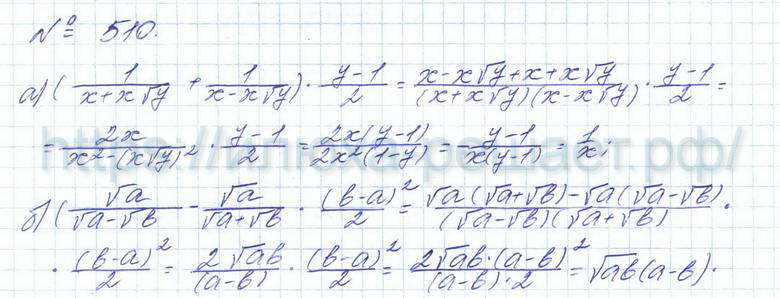 № 510.
а) ( 1/(x+x√y) + 1/(x-x√y) ) · (y-1)/2 = (x-x√y+x+x√y)/((x+x√y)(x-x√y)) · (y-1)/2 =
= 2x/(x²-(x√y)²) · (y-1)/2 = 2x(y-1)/(2x²(1-y)) = -(y-1)/(x(y-1)) = 1/x;
б) ( √a/(√a-√b) - √a/(√a+√b) · (b-a)²/2 = (√a(√a+√b)-√a(√a-√b))/((√a-√b)(√a+√b)) ·
· (b-a)²/2 = 2√ab/(a-b) · (b-a)²/2 = 2√ab·(a-b)²/((a-b)·2) = √ab(a-b).